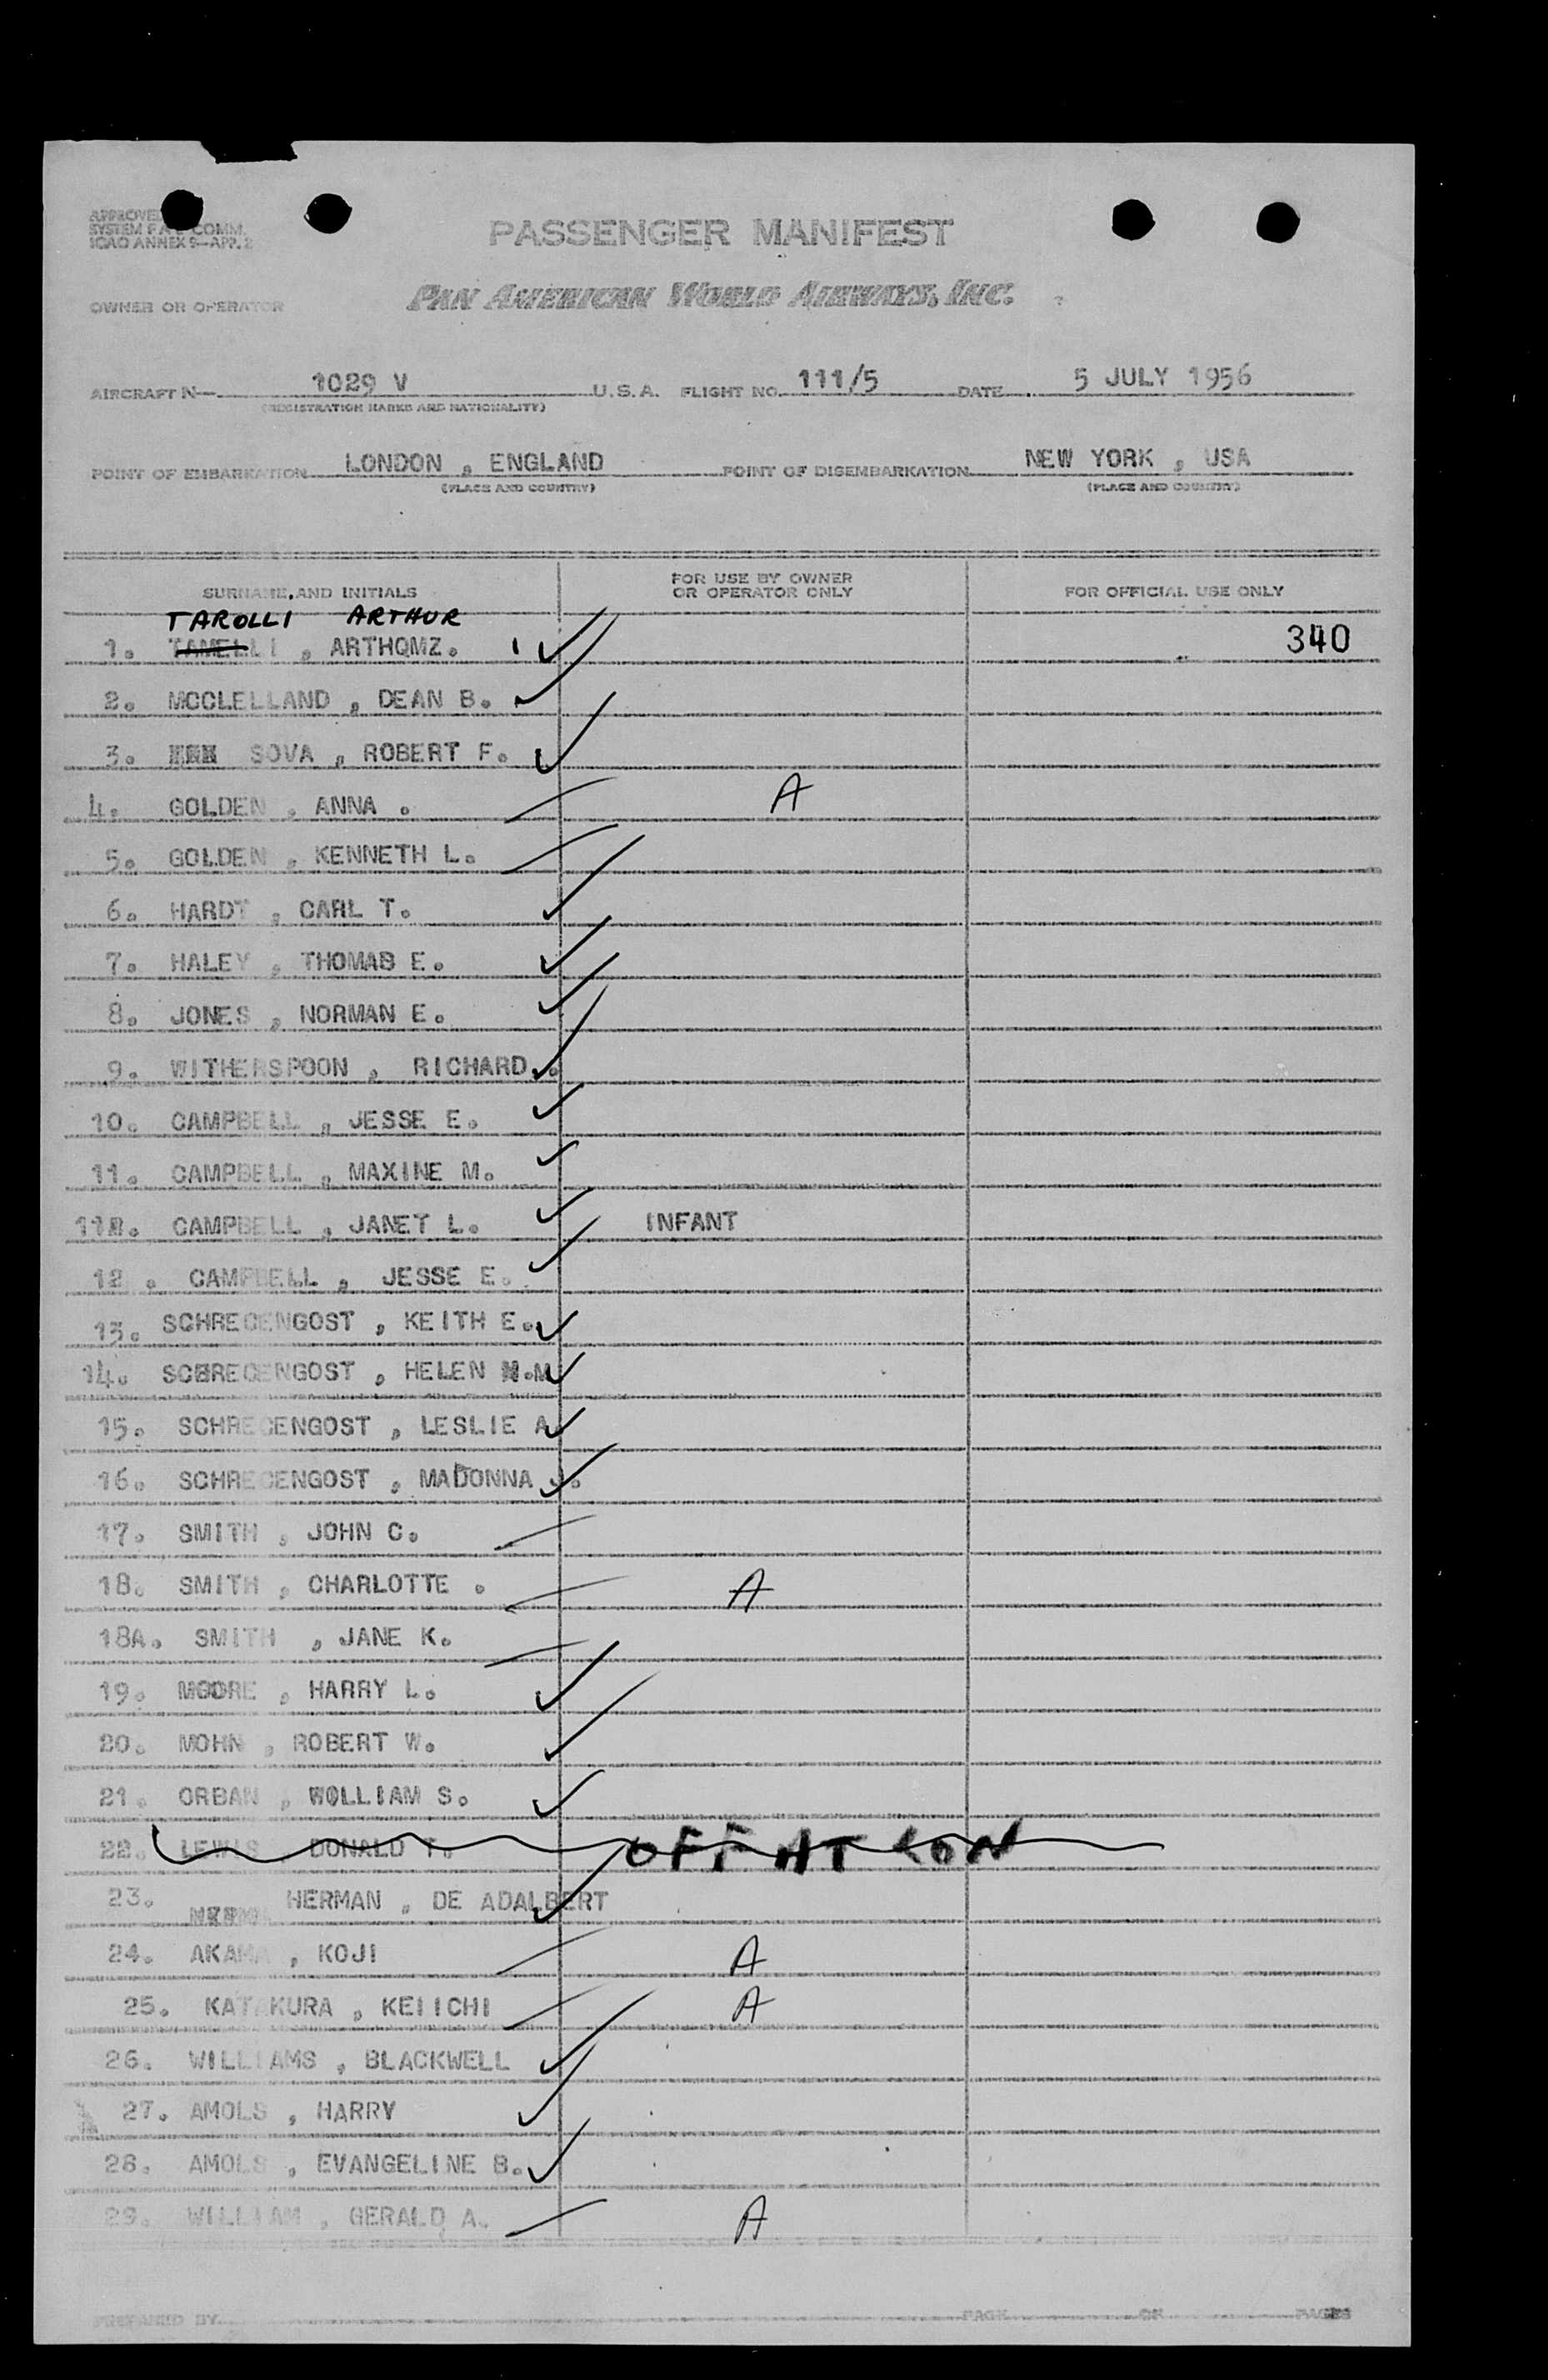 APPROVED
SYSTEM COMM.
ICAO ANNEX 9—APP. 2
PASSENGER MANIFEST
OWNER OR OPERATOR PAN AMERICAN WORLD AIRWAYS, INC.
AIRCRAFT N— 1029 V U.S.A. FLIGHT NO. 111/5 DATE 5 JULY 1956
(REGISTRATION MARKS AND NATIONALITY)
POINT OF EMBARKATION LONDON , ENGLAND POINT OF DISEMBARKATION NEW YORK , USA
(PLACE AND COUNTRY) (PLACE AND COUNTRY)
SURNAME AND INITIALS FOR USE BY OWNER OR OPERATOR ONLY FOR OFFICIAL USE ONLY
TAROLLI ARTHUR
1. TAMELLI , ARTHQMZ. 340
2. MCCLELLAND , DEAN B.
3. SOVA , ROBERT F.
4. GOLDEN , ANNA . A
5. GOLDEN , KENNETH L.
6. HARDT , CARL T.
7. HALEY , THOMAS E.
8. JONES , NORMAN E.
9. WITHERSPOON , RICHARD.
10. CAMPBELL , JESSE E.
11. CAMPBELL , MAXINE M.
11A. CAMPBELL , JANET L. INFANT
12 . CAMPBELL , JESSE E.
13. SCHRECENGOST , KEITH E.
14. SCHRECENGOST , HELEN M.M
15. SCHRECENGOST , LESLIE A.
16. SCHRECENGOST , MADONNA J.
17. SMITH , JOHN C.
18. SMITH , CHARLOTTE . A
18A. SMITH , JANE K.
19. MOORE , HARRY L.
20. MOHN , ROBERT W.
21. ORBAN , WOLLIAM S.
22. LEWIS , DONALD T. OFF AT LON
23. HERMAN , DE ADALBERT
24. AKAMA , KOJI A
25. KATAKURA , KEIICHI A
26. WILLIAMS , BLACKWELL
27. AMOLS , HARRY
28. AMOLS , EVANGELINE B.
29. WILLIAM , GERALD A. A
PREPARED BY PAGE OF PAGES